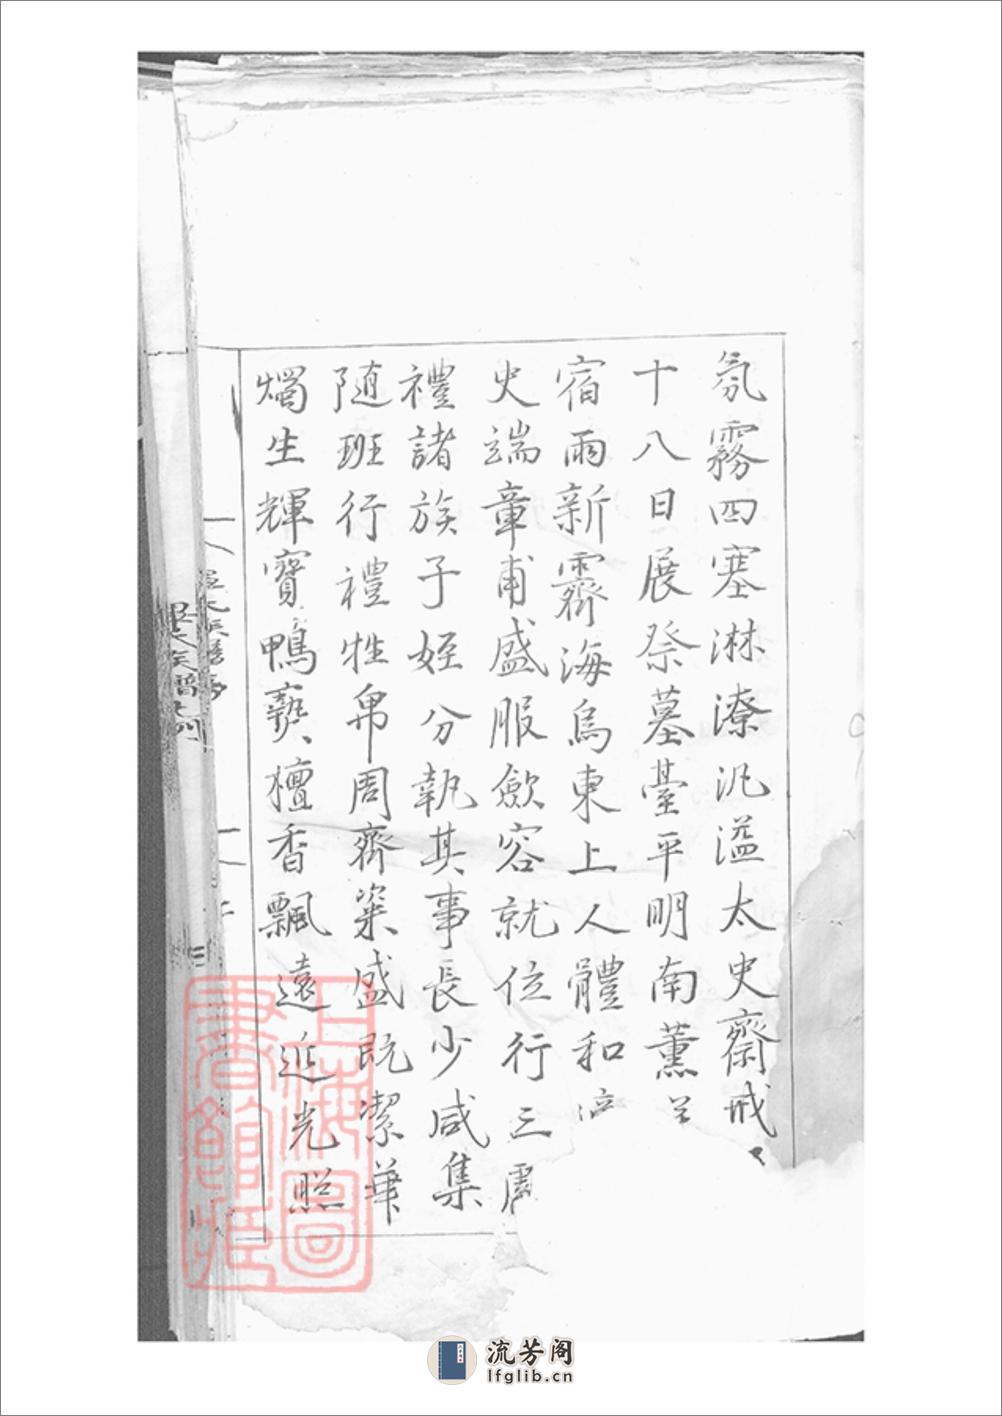 氛霧四塞淋潦汎溢太史齋戒
十八日展祭墓臺平明南薰
宿雨新霽海烏東上人體和
史端章甫盛服斂容就位行三
禮諸族子姪分執其事長少咸集
隨班行禮牲帛周齊粢盛既潔華
燭生輝寶鴨爇檀香飄遠近光照
上海圖書館藏
流芳阁
lfglib.cn